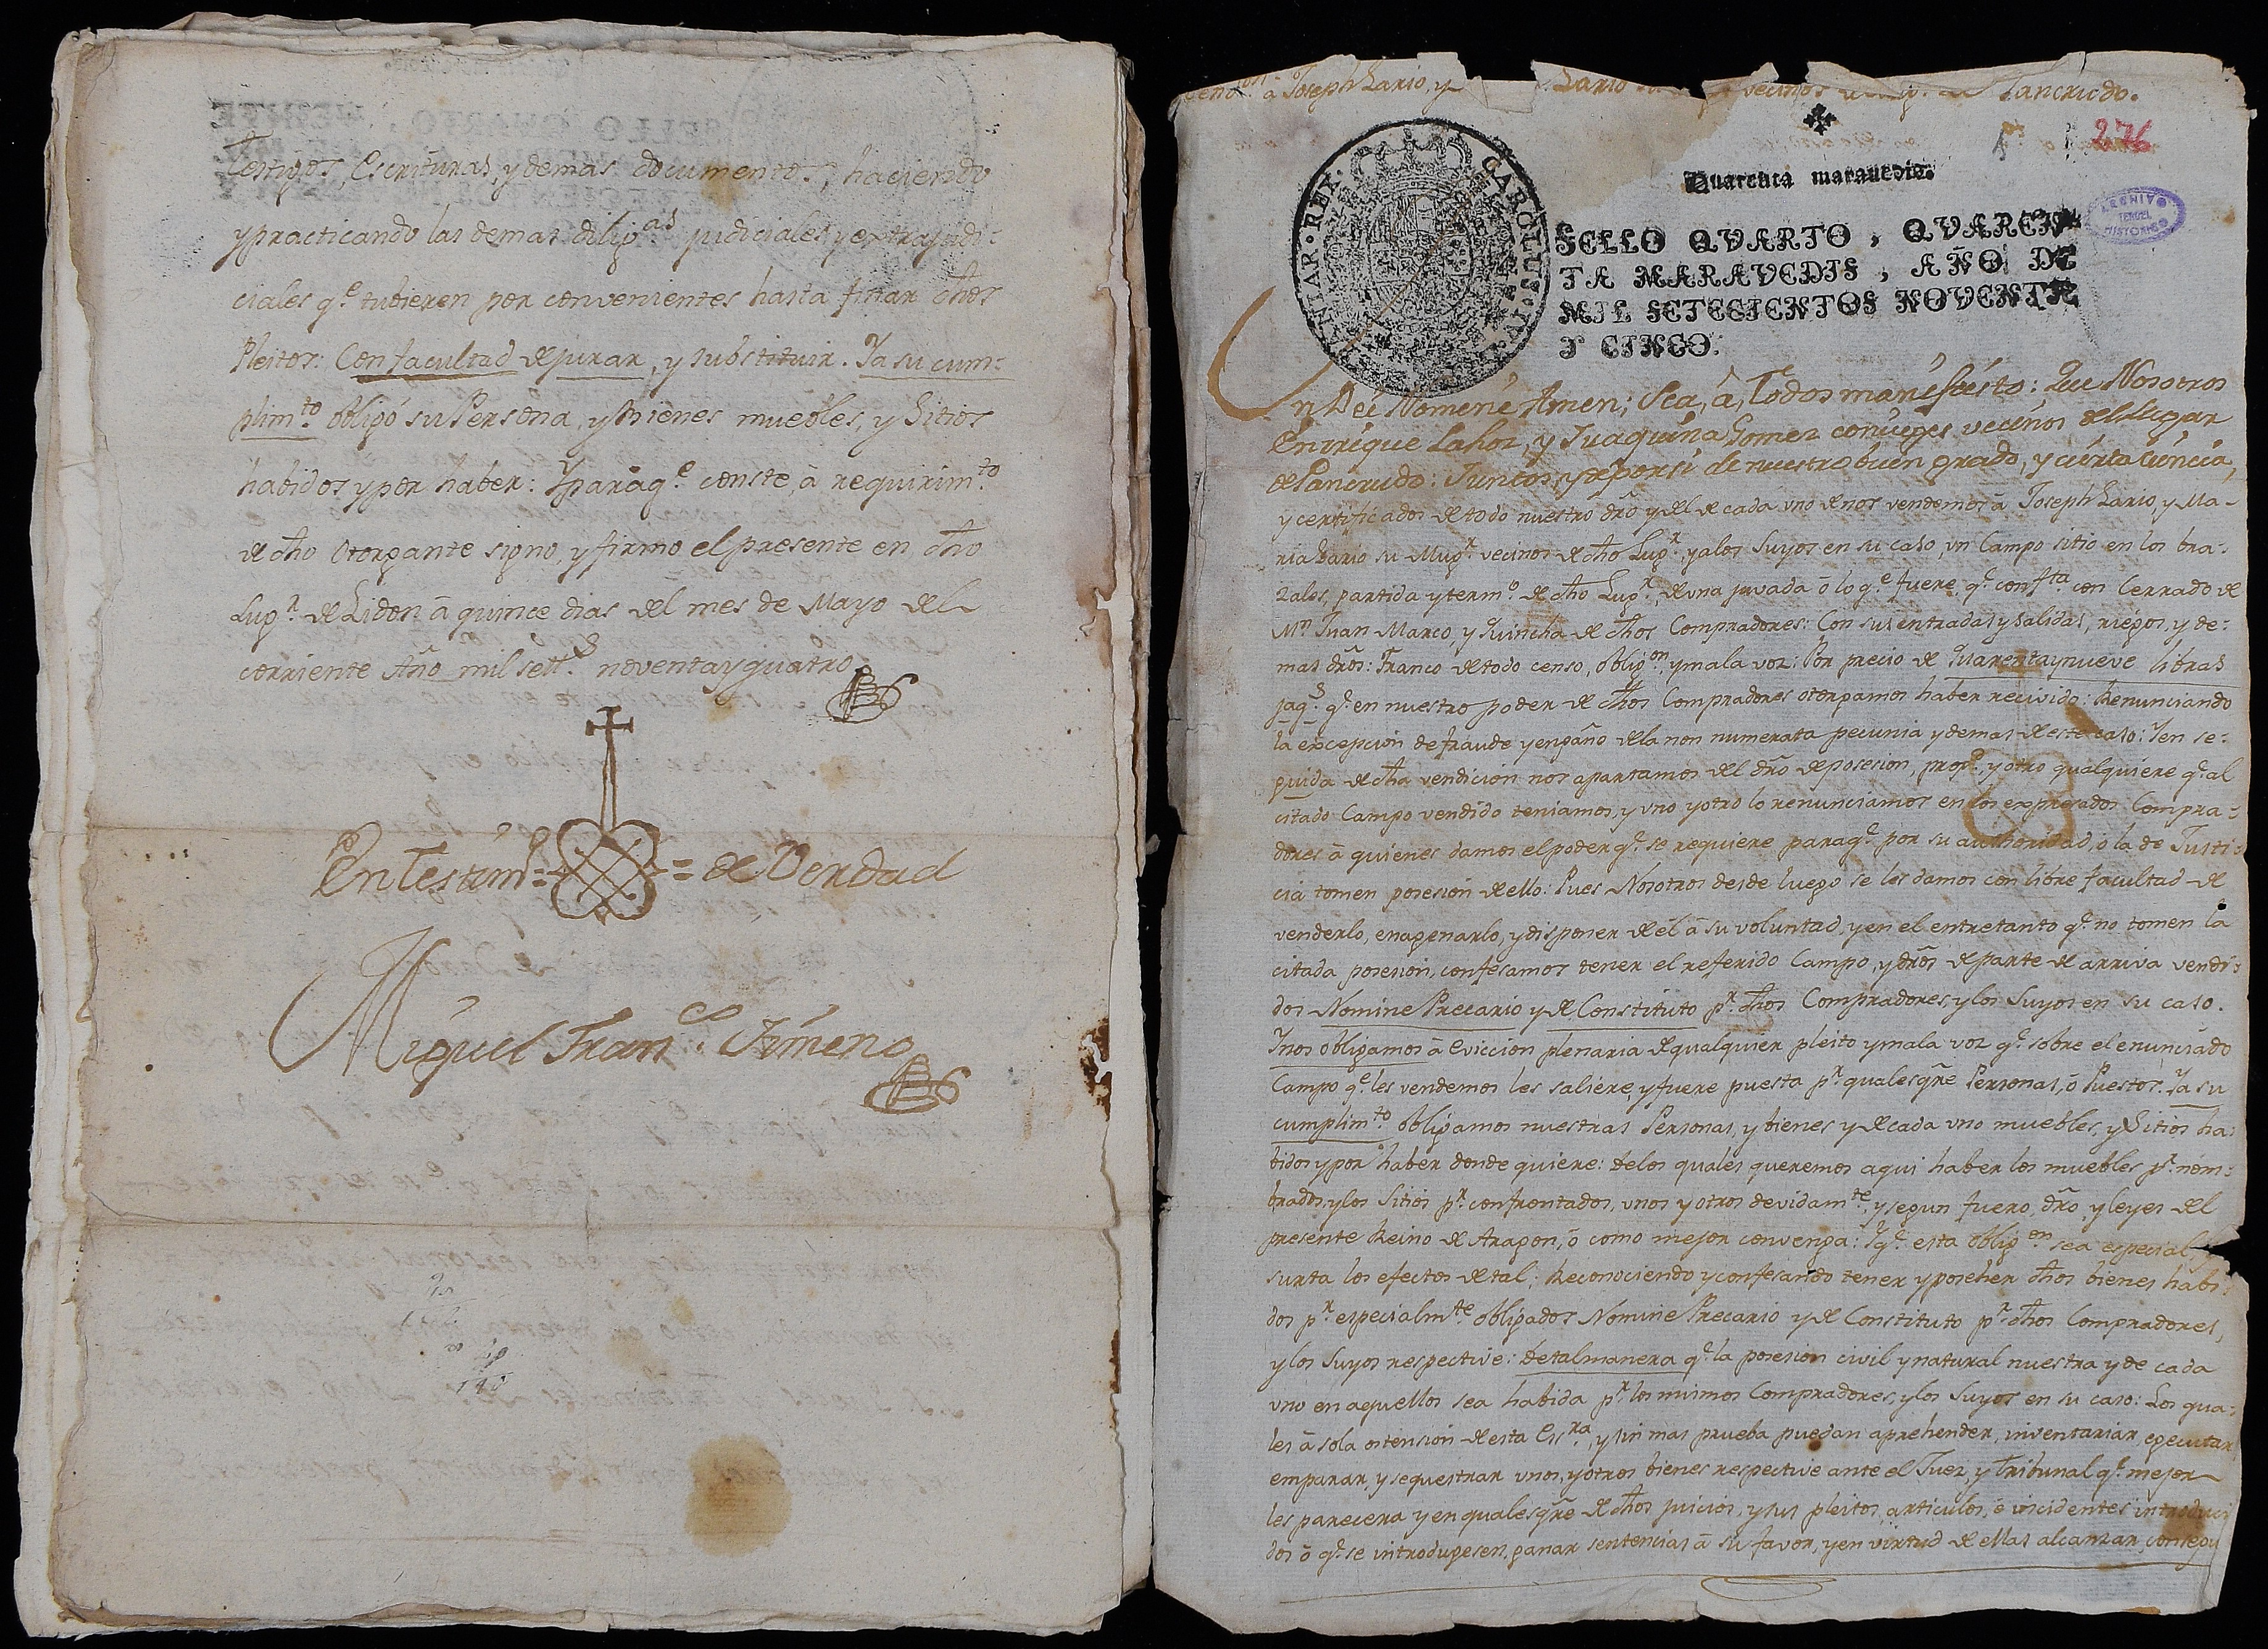 Testigos, Escrituras, y demas documentos, haciendo
y practicando las demas dilig.as judiciales y extrajudi-
ciales q.e tubieren por convenientes hasta finar dhos
Pleitos: Con facultad de jurar, y substituir. Ya su cum-
plim.to obligó su Persona, y Bienes muebles, y Sitios
habidos y por haber: Y para q.e conste, à requirim.to
de dho Otorgante signo, y firmo el presente en dho
Lug.r de Lidon à quince dias del mes de Mayo del
corriente Año mil set.s noventa y quatro
En Testim.o = = de Verdad
Miguel Fran.co Ximeno
à Joseph Lario, y Lario vecinos Pancrudo.
276
Quarenta maravedis.
SELLO QVARTO, QVAREN-
TA MARAVEDIS, AÑO DE
MIL SETECIENTOS NOVENTA
Y CINCO.
CAROLUS IV HISPANIAR REX
ARCHIVO
TERUEL
HISTORICO
In Dei Nomine Amen; Sea, à, Todos manifiesto: Que Nosotros
Enrrique Lahoz, y Juaquina Gomez coniuges vecinos del Lugar
de Pancrudo: Juntos, y de por si de nuestro buen grado, y cierta ciencia,
y certificados de todo nuestro dro y del de cada uno de nos vendemos à Joseph Lario, y Ma-
ria Lario su Mug.r vecinos de dho Lug.r, y a los Suyos en su caso, un Campo sitio en los bra-
zales, partida y term.o de dho Lug.r, de una juvada ò lo q.e fuere q.e conf.ta con Cerrado de
M.n Juan Marco, y Quincha de dhos Compradores: Con sus entradas y salidas, riegos, y de-
mas dros: Franco de todo censo, oblig.on y mala voz: Por precio de Quarenta y nueve libras
jaq.s q.e en nuestro poder de dhos Compradores otorgamos haber recivido: Renunciando
la excepcion de fraude y engaño de la non numerata pecunia y demas de este caso: Y en se-
guida de dha vendicion nos apartamos del dro de posesion, prop.d, y otro qualquiere q.e al
citado Campo vendido teniamos, y uno y otro lo renunciamos en los expresados Compra-
dores à quienes damos el poder q.e se requiere para q.e por su authoridad, ò la de Justi-
cia tomen posesion de ello: Pues Nosotros desde luego se los damos con libre facultad de
venderlo, enagenarlo, y disponer de èl à su voluntad, y en el entretanto q.e no tomen la
citada posesion, confesamos tener el referido Campo, y dros de parte de arriva vendi-
dos Nomine Precario y de Constituto p.r dhos Compradores, y los Suyos en su caso.
Y nos obligamos à Eviccion plenaria de qualquier pleito y mala voz q.e sobre el enunciado
Campo q.e les vendemos les saliere, y fuere puesta p.r qualesqre Personas, ò Puestos. Ya su
cumplim.to obligamos nuestras Personas, y bienes y de cada uno muebles, y Sitios ha-
bidos y por haber donde quiere: de los quales queremos aqui haber los muebles p.r nom-
brados, y los Sitios p.r confrontados, unos y otros devidam.te, y segun fuero, dro, y leyes del
presente Reino de Aragon, ò como mejor convenga: Y q.e esta oblig.on sea especial, y
surta los efectos de tal; Reconociendo y confesando tener y poseher dhos bienes habi-
dos p.r especialm.te obligados Nomine Precario y de Constituto p.r dhos Compradores,
y los Suyos respective: de tal manera q.e la posesion civil y natural nuestra y de cada
uno en aquellos sea habida p.r los mismos Compradores, y los Suyos en su caso: Los qua-
les à sola ostension de esta Ess.ra, y sin mas prueba puedan aprehender, inventariar, egecutar
emparar, y sequestrar unos, y otros bienes respective ante el Juez, y Tribunal q.e mejor
les parecera y en qualesqre de dhos juicios, y sus pleitos, articulos, è incidentes introduci-
dos ò q.e se introdugesen, ganar sentencias à su favor, y en virtud de ellas alcanzar, consegu